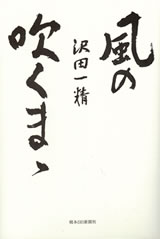 風の
吹くまゝ
沢田一精
熊本日日新聞社